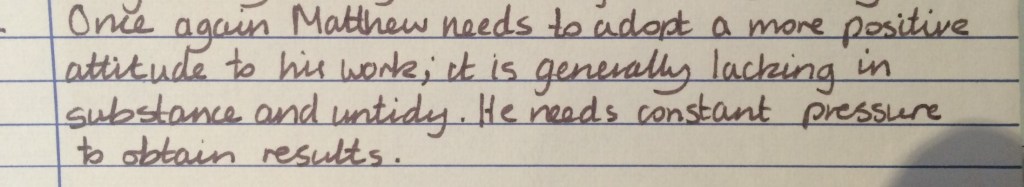 Once again Matthew needs to adopt a more positive
attitude to his work; it is generally lacking in
substance and untidy. He needs constant pressure
to obtain results.